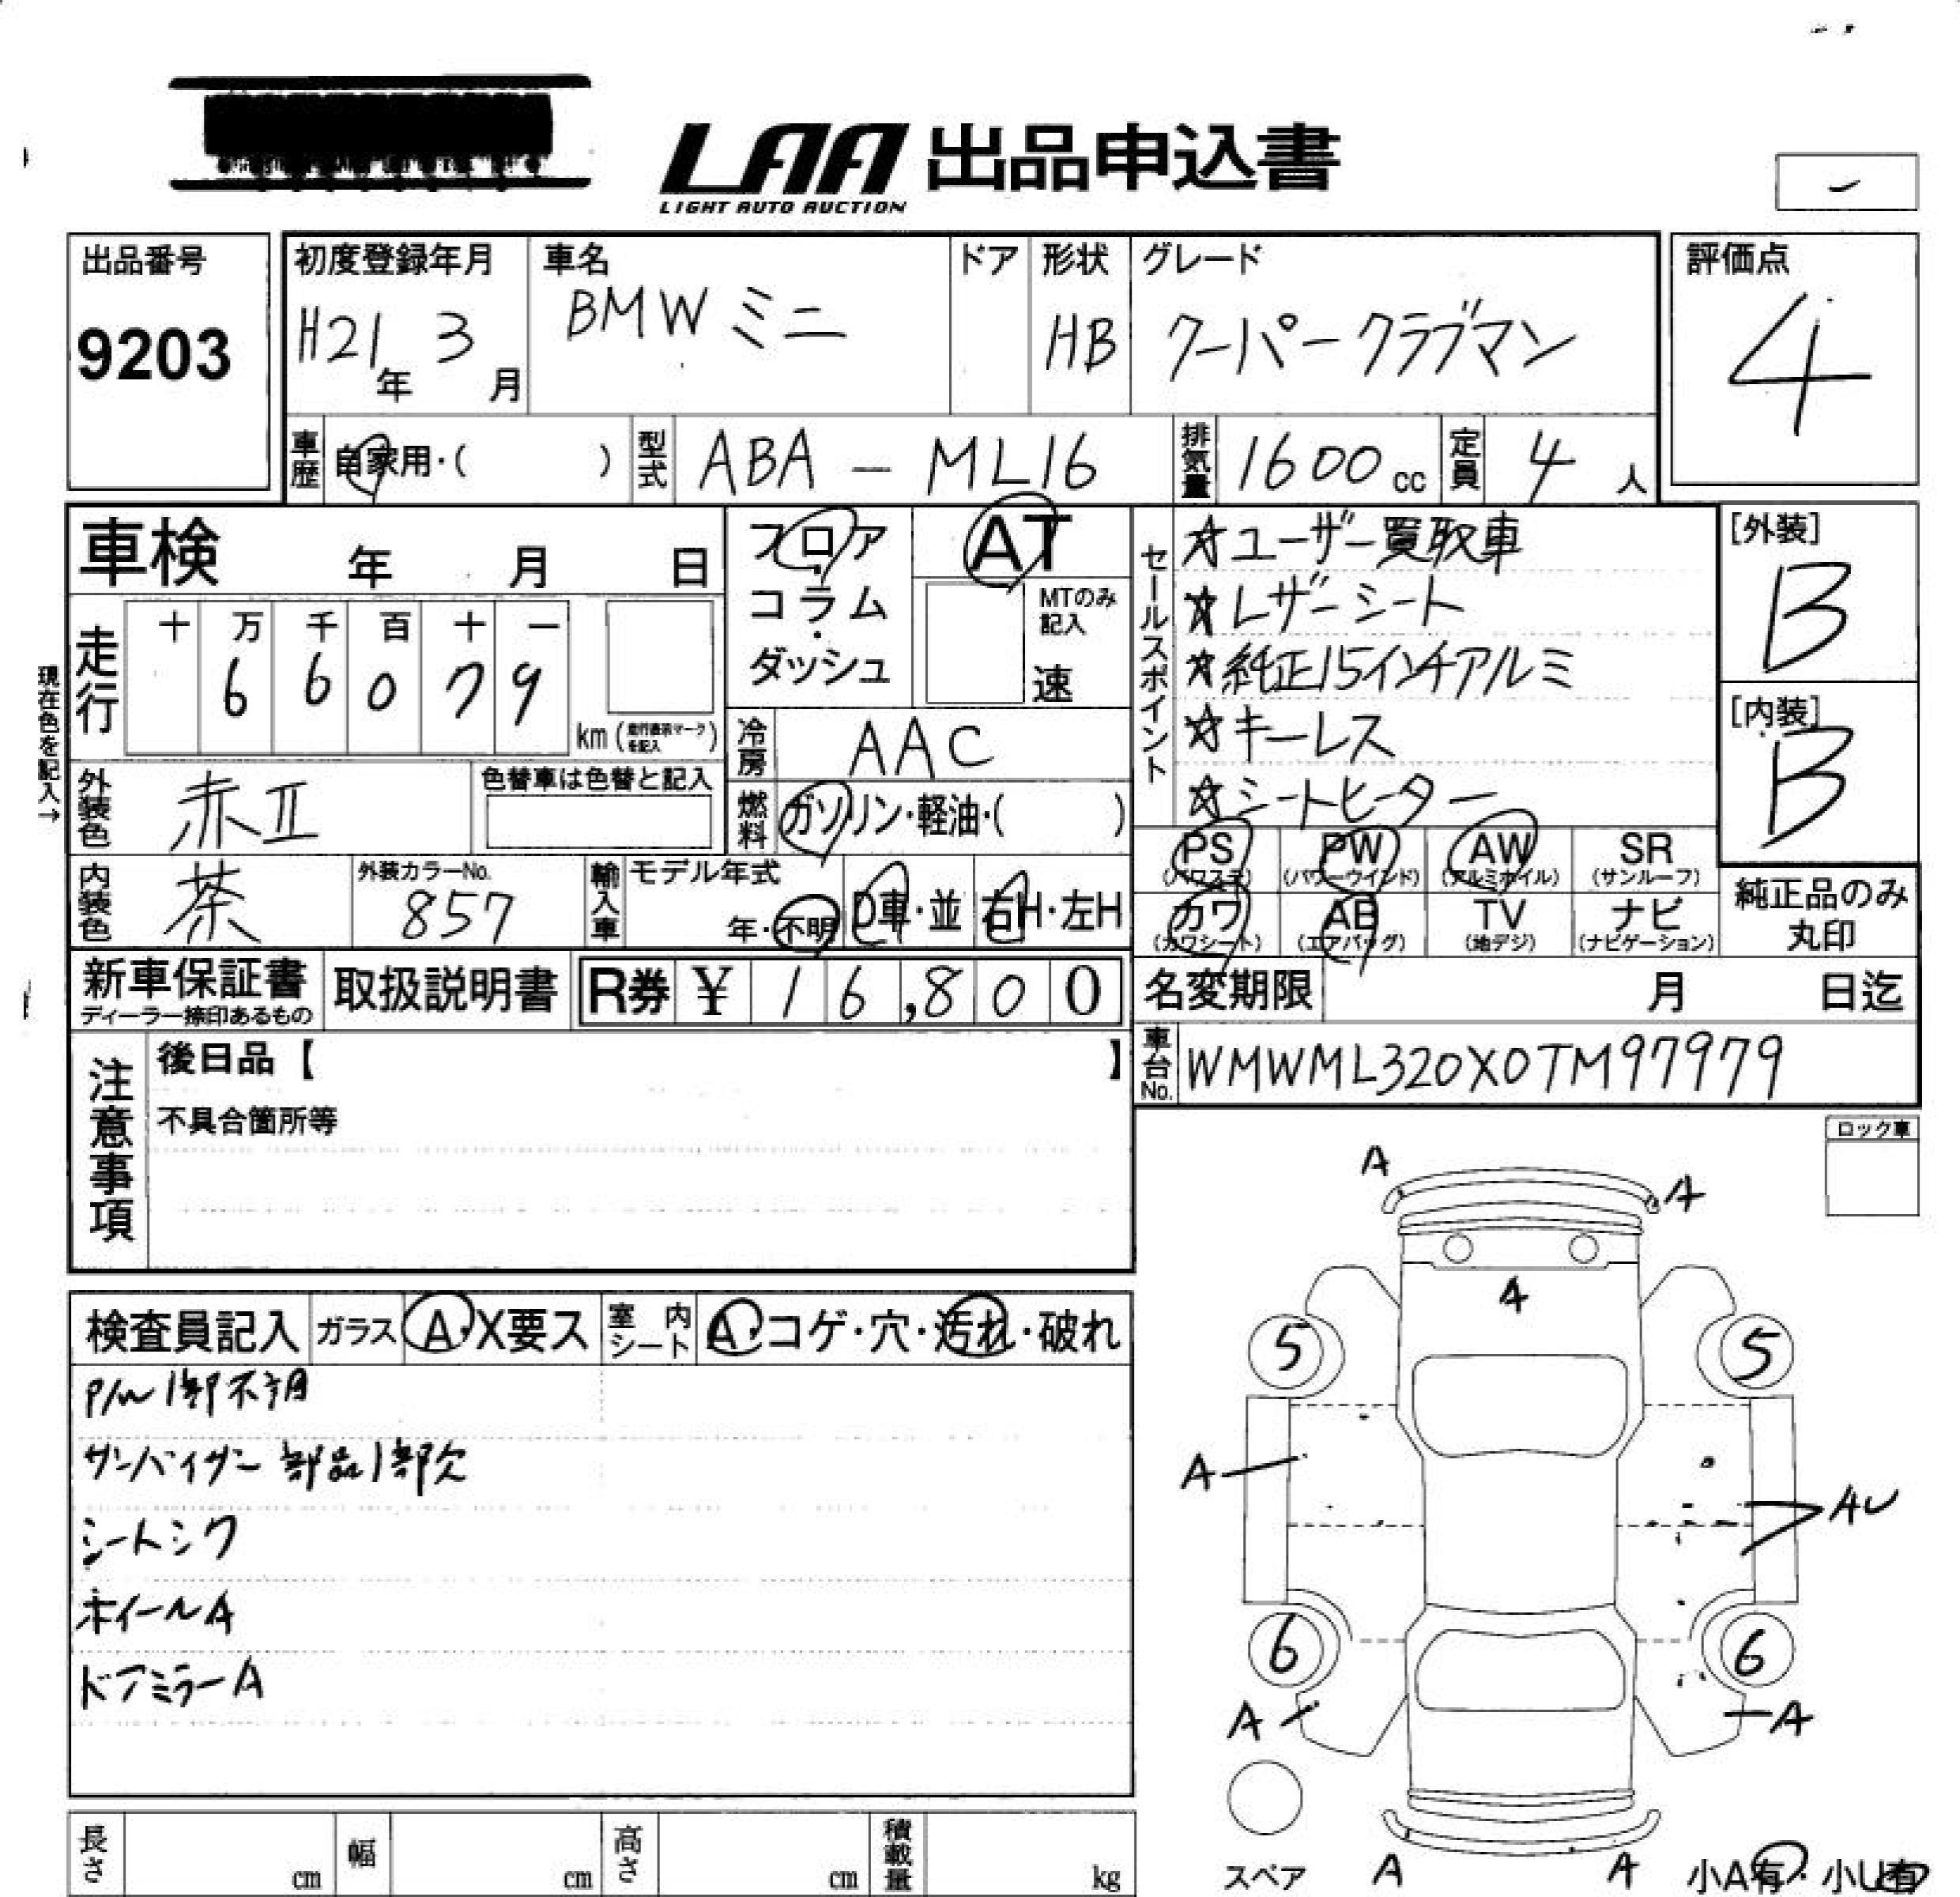 LAA 出品申込書
LIGHT AUTO AUCTION
出品番号
9203
初度登録年月
H21年 3月
車名
BMWミニ
ドア
形状
HB
グレード
クーパークラブマン
評価点
4
車歴 自家用・( )
型式 ABA-ML16
排気量 1600cc
定員 4人
車検 年 月 日
フロア・コラム・ダッシュ
AT
MTのみ記入
速
走行
十 万 千 百 十 一
6 6 0 7 9
km (走行表示マークを記入)
冷房 AAC
燃料 ガソリン・軽油・( )
現在色を記入→
外装色 赤Ⅱ
色替車は色替と記入
内装色 茶
外装カラーNo.
857
輸入車 モデル年式
年・不明 D車・並 右H・左H
セールスポイント
☆ユーザー買取車
☆レザーシート
☆純正15インチアルミ
☆キーレス
☆シートヒーター
[外装]
B
[内装]
B
PS AW PW SR
(パワステ) (パワーウインド) (アルミホイル) (サンルーフ)
カワ AB TV ナビ
(カワシート) (エアバッグ) (地デジ) (ナビゲーション)
純正品のみ丸印
新車保証書
ディーラー捺印あるもの
取扱説明書
R券 ¥16,800
名変期限 月 日迄
車台No. WMWML320X0TM97979
注意事項
後日品【 】
不具合箇所等
ロック車
検査員記入 ガラス A・X要ス 室内シート A・コゲ・穴・汚れ・破れ
P/W 1部不調
サンバイザー 部品1部欠
シートシワ
ホイールA
ドアミラーA
A
A
4
5 5
A
AU
6 6
A A
スペア A A 小A有・小U有
長さ cm 幅 cm 高さ cm 積載量 kg